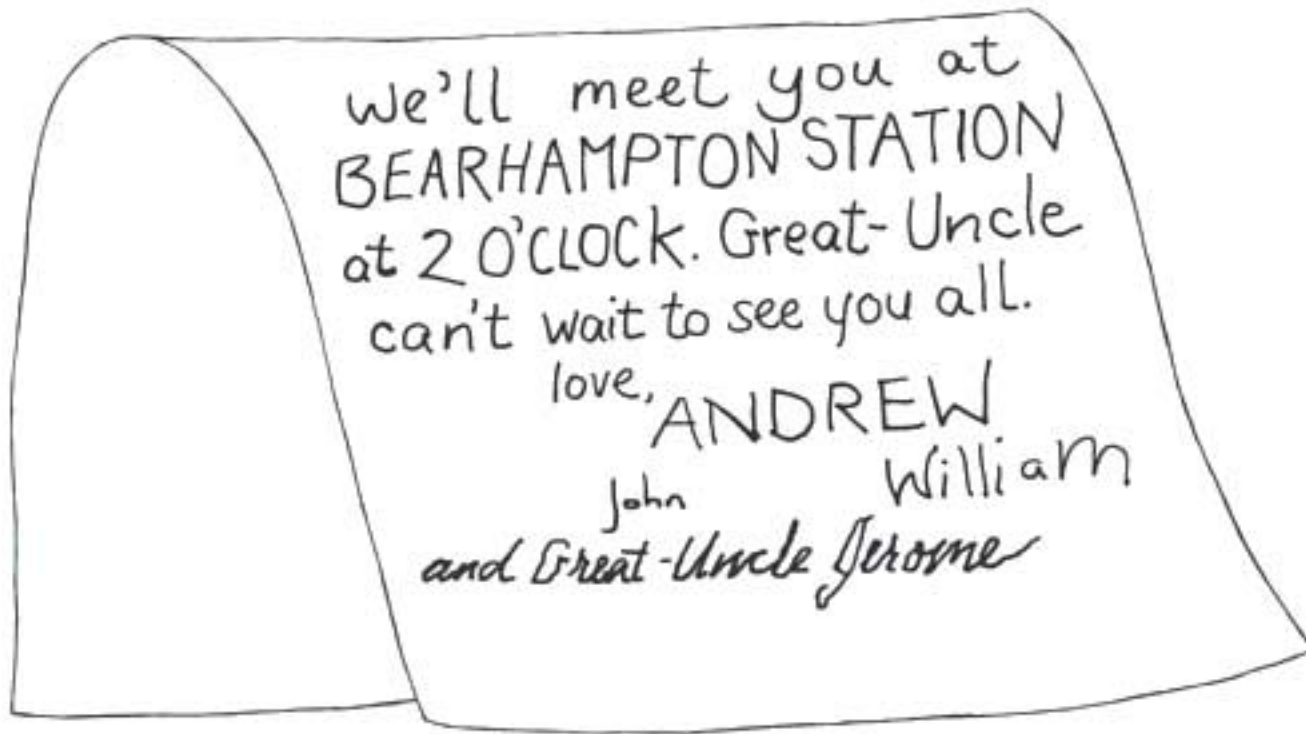 We'll meet you at
BEARHAMPTON STATION
at 2 O'CLOCK. Great-Uncle
can't wait to see you all.
love,
ANDREW
William
John
and Great-Uncle Jerome